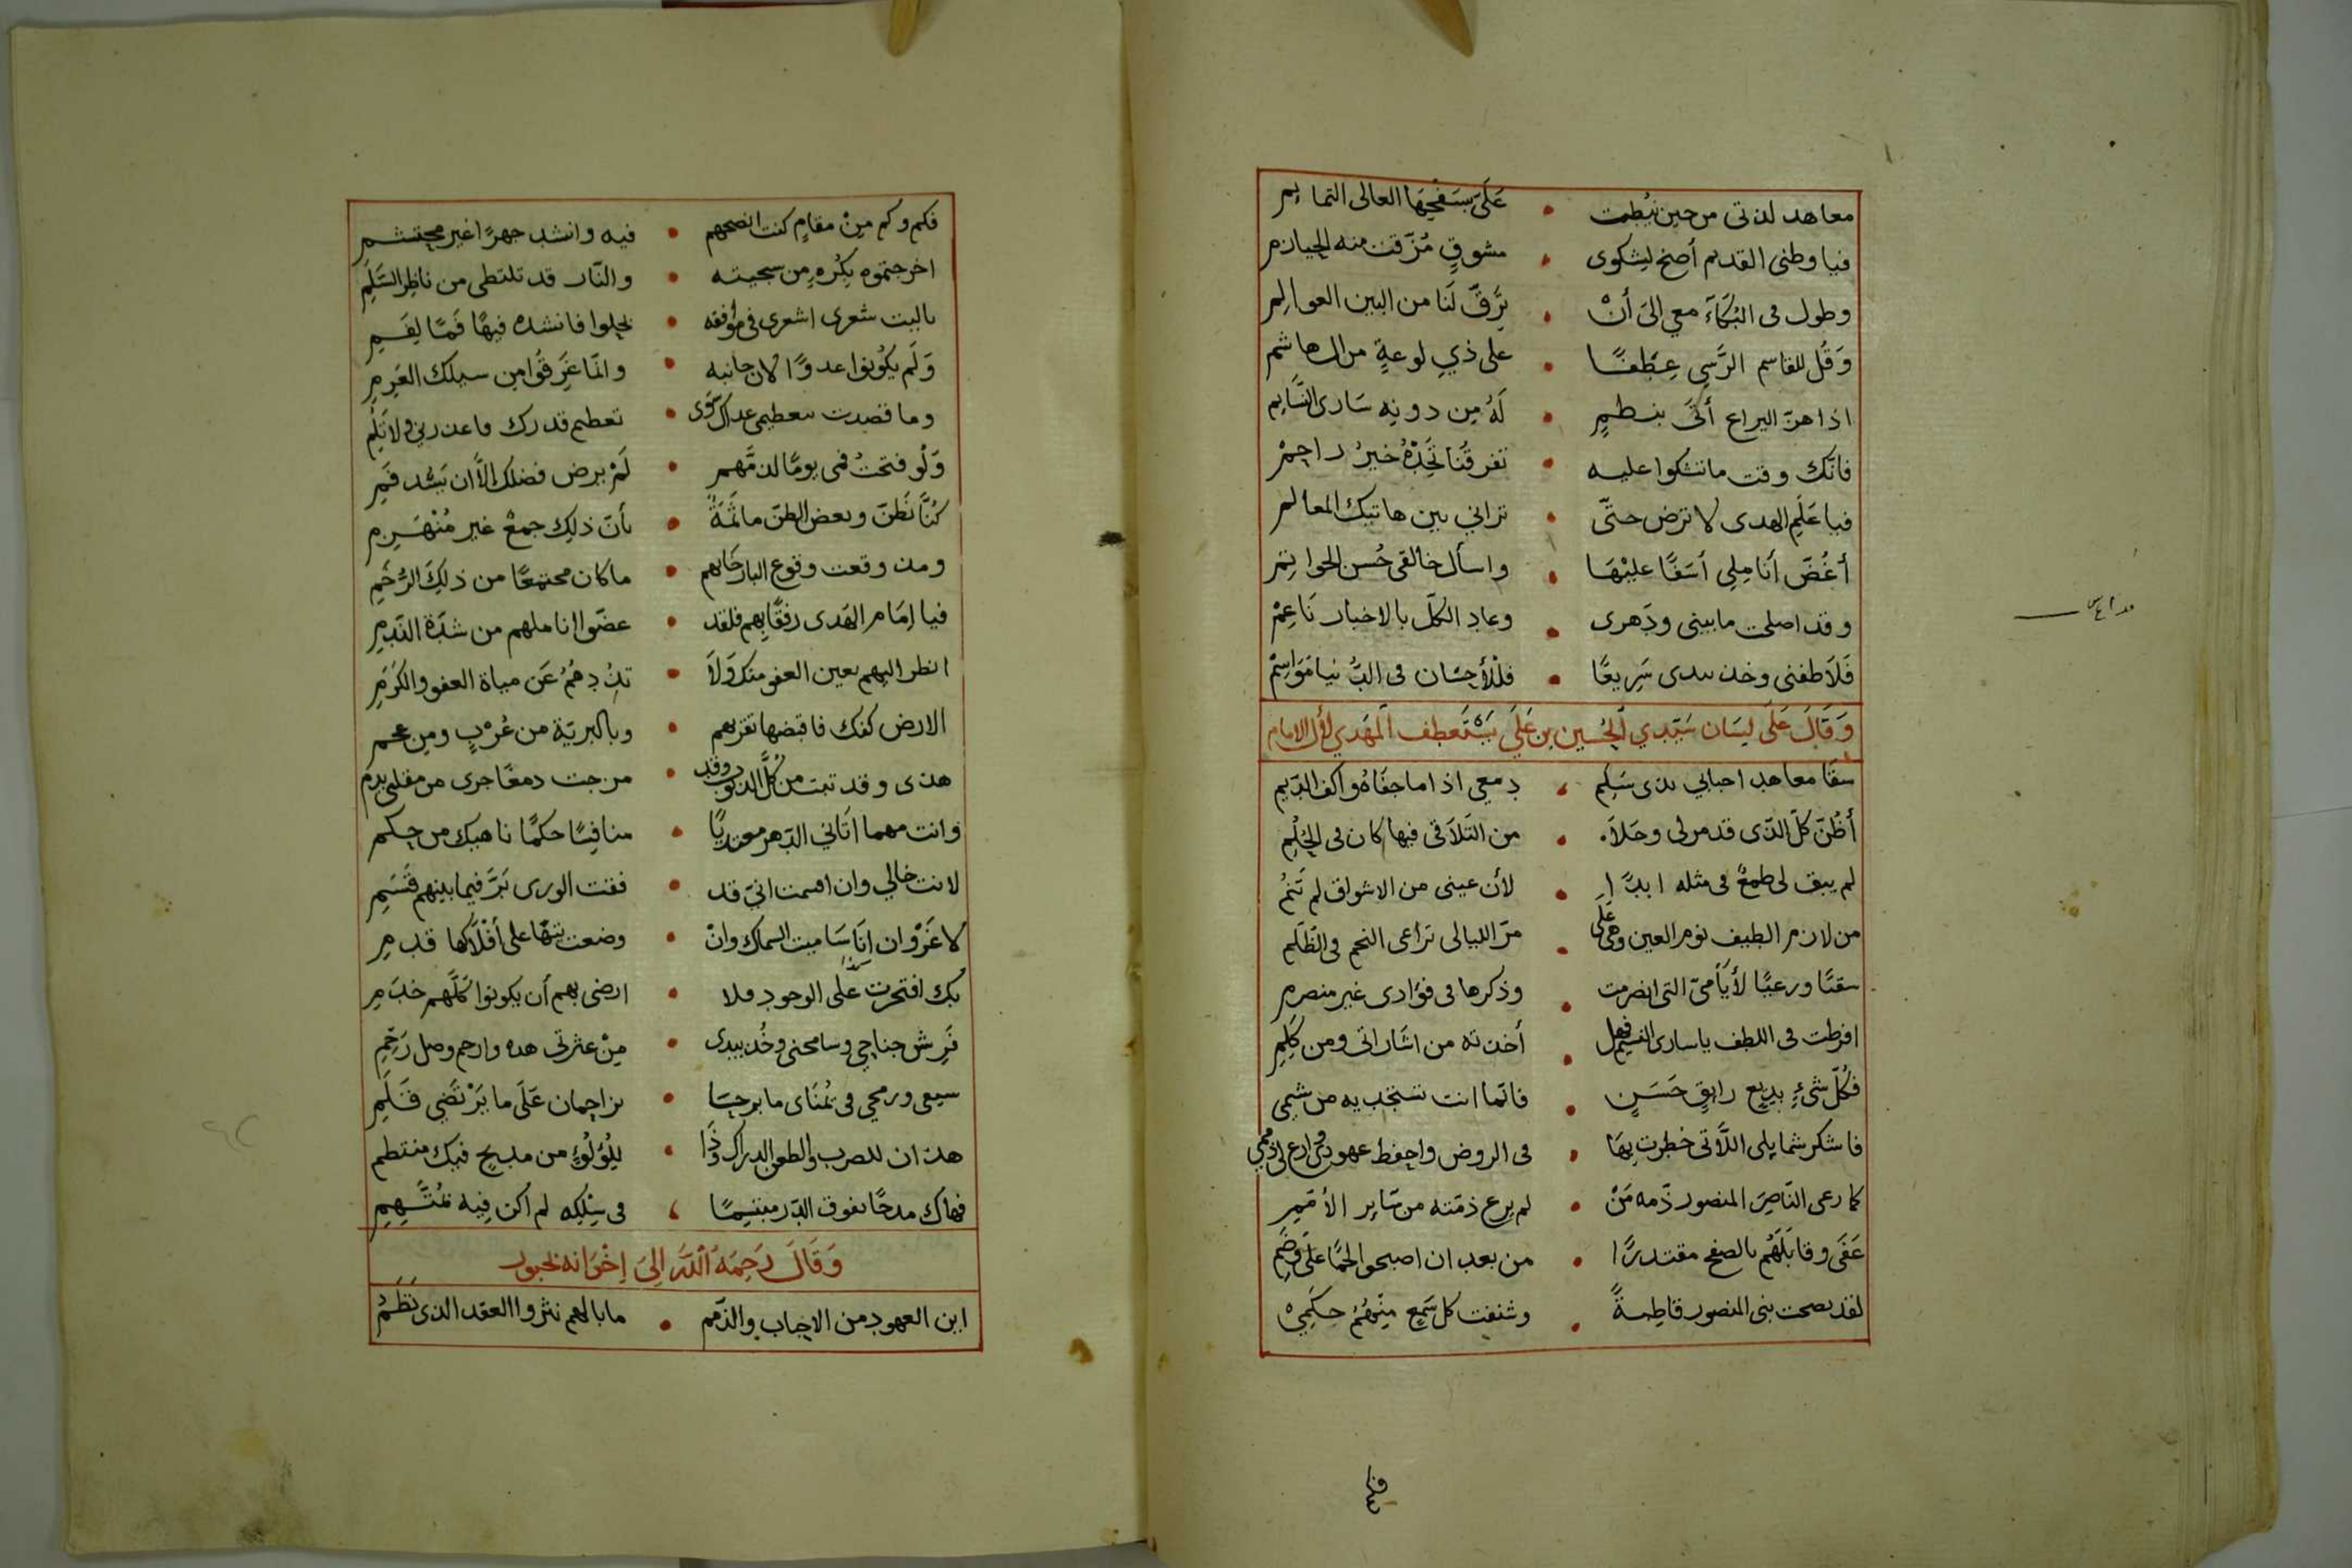 معاهد لذتى من حين نيطت • على سفحيها العالى التمايم
فيا وطنى القديم أصخ لشكوى • مشوقٍ مُزّقت منه الحيازم
وطول فى البُكآءَ معي الىَ أنْ • يَرقّ لَنا من البين العوالم
وَقُل للقاسم الرَّسِي عِطفًا • على ذي لوعةٍ من ال هاشم
اذا هزّ اليراع أتَى بنظمٍ • لَهُ مِن دونِه سَارى النَّسايم
فانك وقت ما تشكوا عليه • تفرقُنا تجَدْهُ خيرُ راحِمْ
فيا عَلَم الهدى لا ترض حتّى • ترانِي بين هاتيك المعالم
أعُضّ أنَامِلي أسَفًا عليْهَا • واسأل خالقى حُسن الخواتم
وقد اصلحت ما بينى ودَهرى • وعاد الكلّ بالاخبار نَاعِمْ
فَلاَطفنى وخذ بيدى سَرِيعًا • فللأحسَان فى الدُّنيا مَوَاسِمْ
وَقَالَ عَلَى لِسَان سَيّدي الحُسين بن عَلَي يَسْتَعطِف المَهدي لأل الامام
سقَا معاهد احبابي بذى سَلِم ، دِمعي اذا ما جفَاهُ واكف الدّيم
أظُنّ كلّ الذّى قد مر لى وحَلاَ • من التَلاَقى فيها كان فى الحُلُم
لم يبق لى طمعٌ فى مثله ابدًا • لأن عينى من الاشواق لم تَنمُ
من لازم الطيف نوم العين وهى عَلَى • مرّ الليالى تراعى النجم فى الظّلَم
سقيًا ورعيًا لأيَّامىّ التى انصرمت • وذكرها فى فؤادى غير منصرم
افرطت فى اللطف يا سارى النسيم فهل • أخذته من اشَاراتى ومن كَلِمِ
فكُلّ شىءٍ بديعٍ رايقٍ حَسَنٍ • فانّما انت تستجديه من شيمى
فاشكر شمايلى اللَّاتى خطرت بِهَا • فى الروض واحفظ عهودى وارع لى ذممي
كما رعى النّاصِرَ المنصور ذّمه مَنْ • لم يرع ذمّته من سَاير الأمَمِ
عَفَى وقابَلَهُم بالصفح مقتدرًا • من بعد ان اصبحوا لحمًا عَلَى وَضَمِ
لقد نصحت بنى المنصور قاطِبةً • وشنفت كل سَمعٍ مِنهُمُ حِكَمِي
فكم
فكم وكم مِنْ مقامٍ كنت انصحهم • فيه وانشد جهرًا غير محتشمِ
اخرجتموه بكُرهٍ من سجيته • والنّار قد تلتظى من ناظِر السَّلَمِ
ياليت شعرى اشعرى فى مواقفه • تخلوا فانشده فيها فَمًا لِفَمِ
وَلَم يكُونوا عدوًّا لان جانبه • وانّما غَرِقُوا من سيلك العَرِمِ
وما قصدت بتعظيمى عداك سَوَى • تعظيم قدرك فاعذرنى ولا تَلُمِ
وَلَو فتحتُ فمى يومًا لذمّهم • لَمْ يرض فضلك الاّ ان يَسُد فَمِي
كنَّا نَظُنّ وبعض الظنّ مأثمَةٌ • بأنّ ذلِك جمعٌ غير مُنْهَزِمِ
ومذ وقعت وقوع الباز خَانهم • ما كان مجتمعًا من ذلِكَ الرُّخَمِ
فيا إمَام الهَدى رفقًا بِهم فلقد • عضّوا اناملهم من شدّة النّدمِ
انظر اليهم بعين العفو منك وَلاَ • تذُدهُمُ عَن مياة العفو والكَرَمِ
الارض كفك فاقبضها تفز بهم • وبالبريّة من عُرْبٍ ومِن عجم
هذى وقد تبت من كلّ الذنوب وقد • مزجت دمعًا جرى من مقلتى بدم
وانت مهما اَتَانى الدّهر معتديًا • منافِسًا حكمًا ناهيك من حِكم
لانت خالي وان اقسمت انّى قد • فقت الورى بَرَّ فيما بينهم قَسَمِي
لا غَرْوان اِنَا سَاميت السماك وانْ • وضعت تيهًا على أفْلاَكها قدمِي
بك افتخرت على الوجود فلا • ارضى بهم أن يكونوا كلّهم خدَمِي
فَرِش جناحي وسامحنى وخُذ بيدى • مِنْ عثرتى هذه وارحم وصل رَحِمِ
سيفى ورمحي فى يُمنَاى ما برحَا • يزاحمان عَلَى ما يَرْتَضِي قَلَمِ
هذان للضرب والطعن الدراك وَذَا • للُؤلُؤءٍ من مديحٍ فيك منتظم
فهاك مدحًا يفوق الدّر مبتسِمًا ، فى سِلكِه لم اكن فِيه بمُتَّهِمِ
وَقَالَ رَحِمَهُ اللهُ الىَ اِخْوَانه بحبور
اين العهود من الاحباب والذّمم • ما بالهم نثروا العقد الذى نَظَمُ